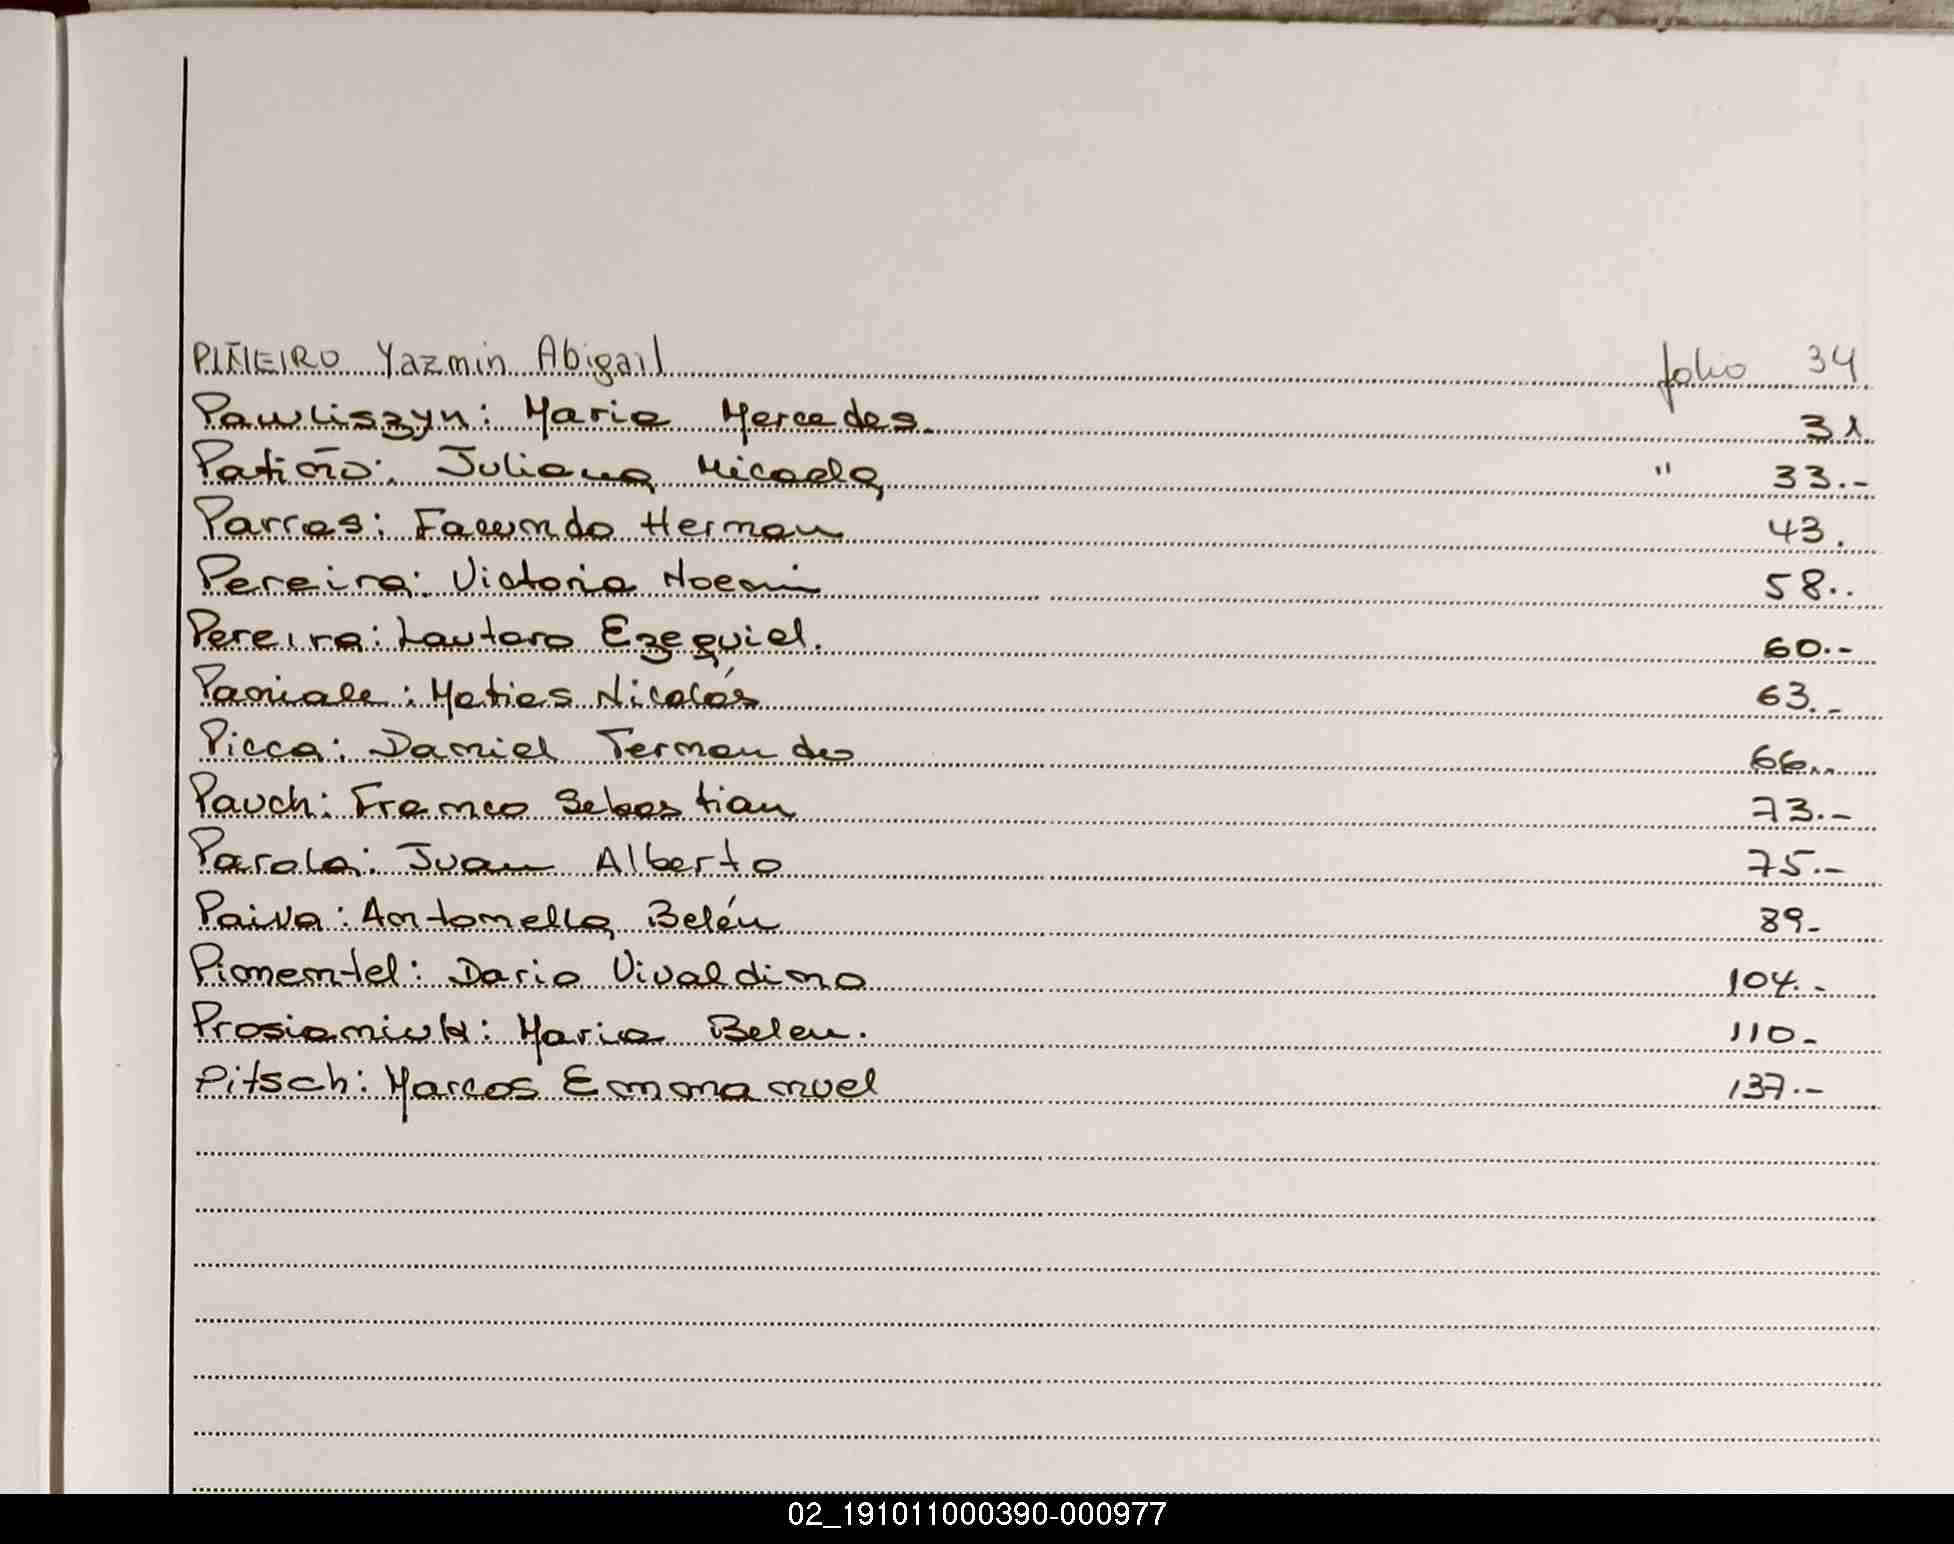 PIÑEIRO Yazmin Abigail folio 34
Pawliszyn: Maria Mercedes. 31.
Patiño: Juliana Micaela " 33.-
Parras: Facundo Hernan 43.
Pereira: Victoria Noemi 58..
Pereira: Lautaro Ezequiel. 60.-
Paniale: Matias Nicolás 63.-
Picca: Daniel Fernando 66..
Pauch: Franco Sebastian 73.-
Parola: Juan Alberto 75.-
Paiva: Antonella Belén 89-
Pimentel: Dario Vivaldino 104.-
Prosianiuk: Maria Belen. 110-
Pitsch: Marcos Emmanuel 137.-
02_191011000390-000977